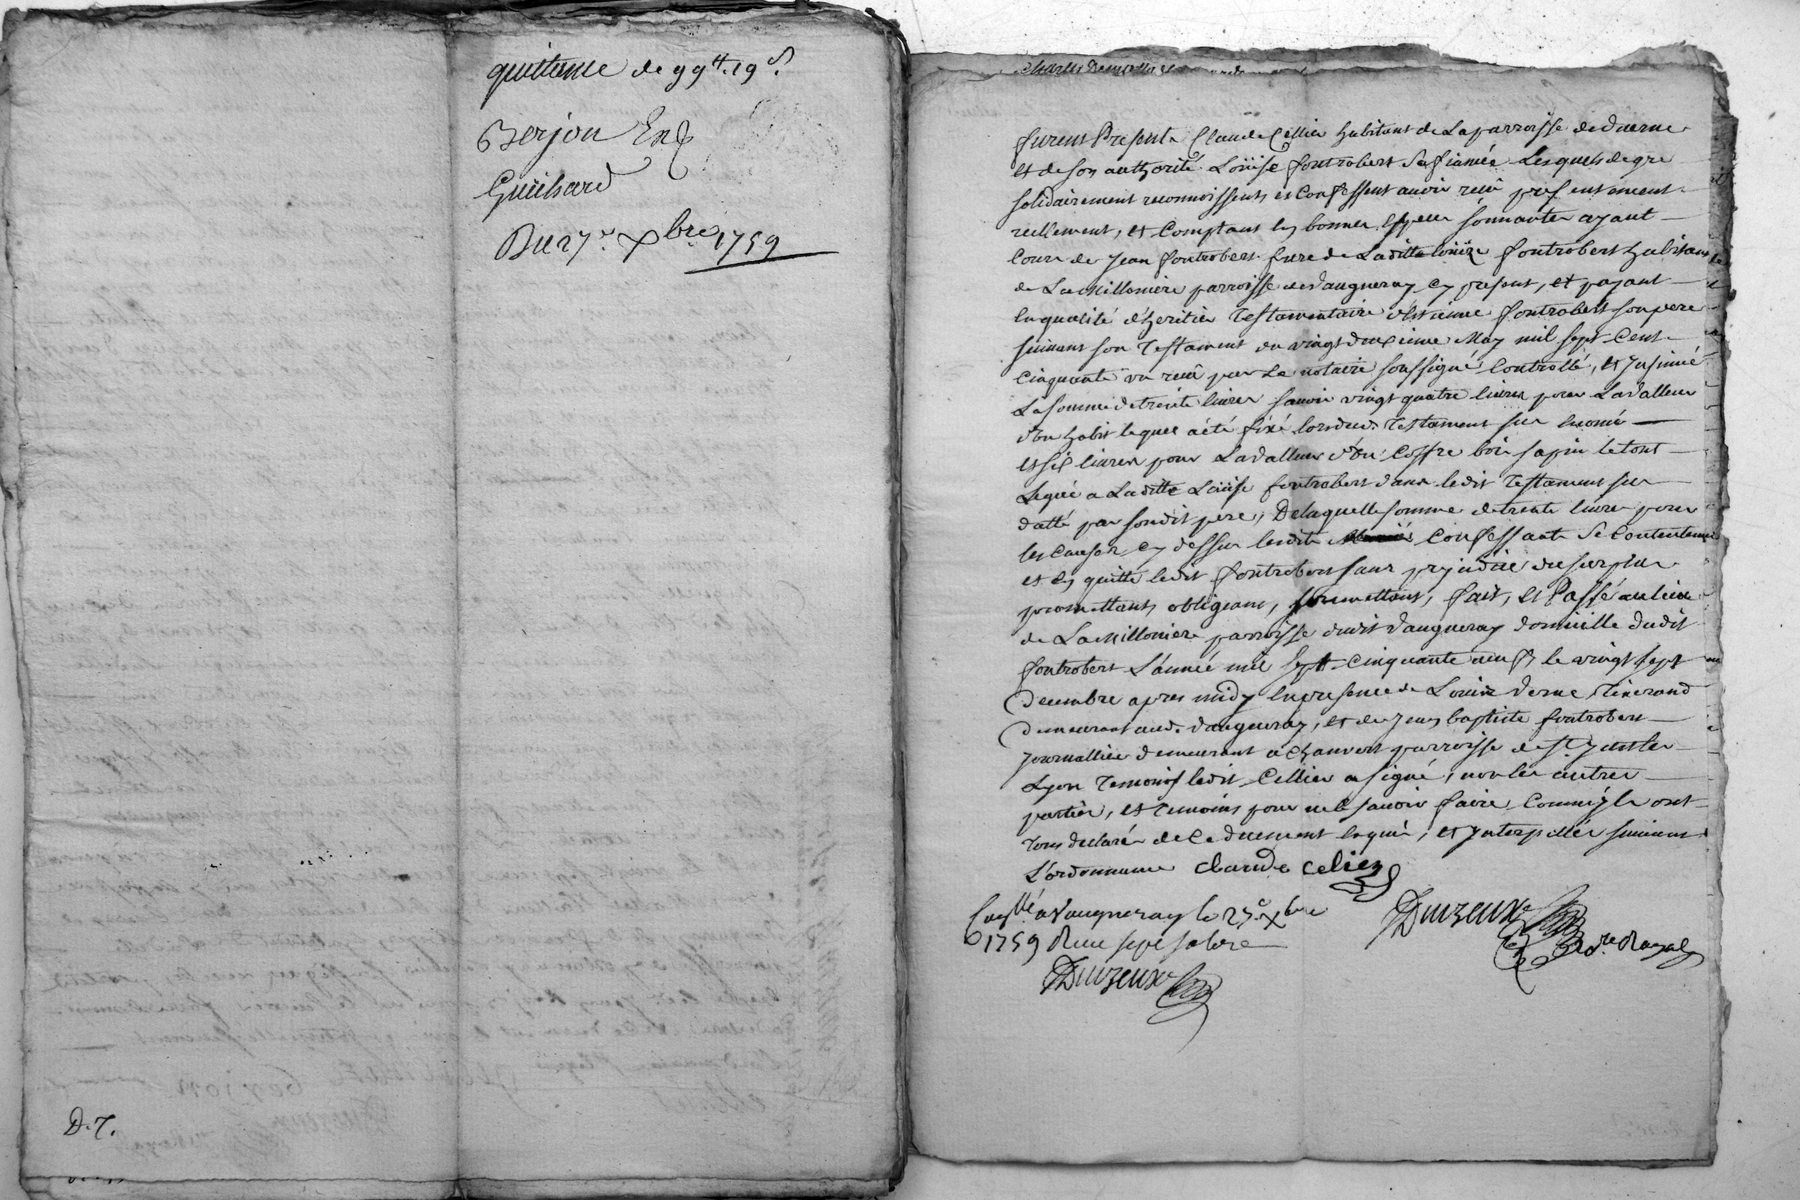 quittance de 99tt. 19s.
Berjon En
Guichard
Du 27e. xbre 1759
D. 7.
furent Presents Claude Cellier habitant de La parroisse de duerne
et de son authorité Loüise fontrobert Sa fiamée Lesquels de gre
solidairement reconnoissents et Confessent auoir reçû presentement
reellement, et Comptant en bonnes Especes sonnantes ayant
Cours de Jean fontrobert frere de Laditte loüize fontrobert habitant
de La Milloniere parroisse de Vaugneray cy present, et payant
en qualité d'heritier Testamentaire d'Estienne fontrobert son pere
suiuant son Testament du vingt deuxieme May mil sept Cent
Cinquante un reçû par Le notaire soussigné Controllé, et Insinué
La somme de trente liures sauoir vingt quatre liures pour La Valleur
d'Un habit lequel a été fixé lors dud. Testament sur enoncé
et six liures pour La Valleur d'Un Coffre bois sapin le tout
Legué a Laditte Loüise fontrobert dans ledit Testament sus
datté par sondit pere, De laquelle somme de trente liures pour
les Causes cy dessus lesdits Confessants Se Contentent
et en quitte ledit fontrobert sans prejudice du surplus
promettants, obligeans, soumettants, fait, et Passé au lieu
de La Milloniere parroisse dudit Vaugneray domicille dudit
fontrobert L'année mil sept Cinquante neuf, le vingt sept
Decembre apres midy en presence de Louis Verne Tixerand
Demeurant aud. Vaugneray, et de Jean baptiste fontrobert
Journallier demeurant a Chauvert parroisse de St. Just les
Lyon Temoins ledit Cellier a signé, non les autres
parties, et temoins pour ne le sauoir faire Comme ils ont
tous declaré de Ce duement enquis, et Interpellés suiuant
L'ordonnance Claude Celier
Con.llé a Vaugneray le 27e. xbre
1759 Reçu sept sols
Duizeux
Duizeux
No.re Royal